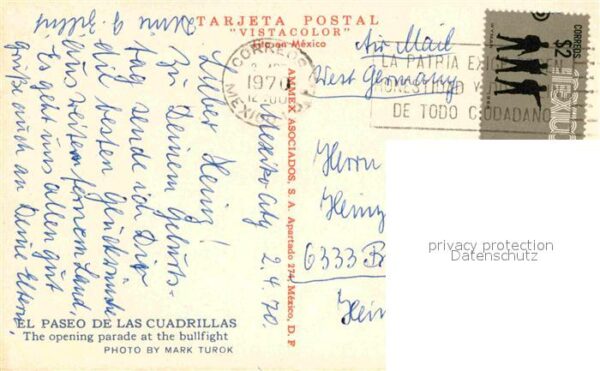 TARJETA POSTAL
"VISTACOLOR"
México
CORREOS
1970
MEXICO
LA PATRIA EXIGE
HONESTIDAD Y
DE TODO CIUDADANO
CORREOS
$2
Air Mail
West Germany
Mexiko City 2.4.70.
Lieber Heinz!
Zu Deinem Geburts-
tag sende ich Dir
die besten Glückwünsche
aus weitem fernem Land.
Es geht uns allen gut
grüße auch an Deine Eltern
AMMEX ASOCIADOS, S. A. Apartado 274, México, D. F.
Herrn
Heinz
6333 B
Hein
privacy protection
Datenschutz
EL PASEO DE LAS CUADRILLAS
The opening parade at the bullfight
PHOTO BY MARK TUROK